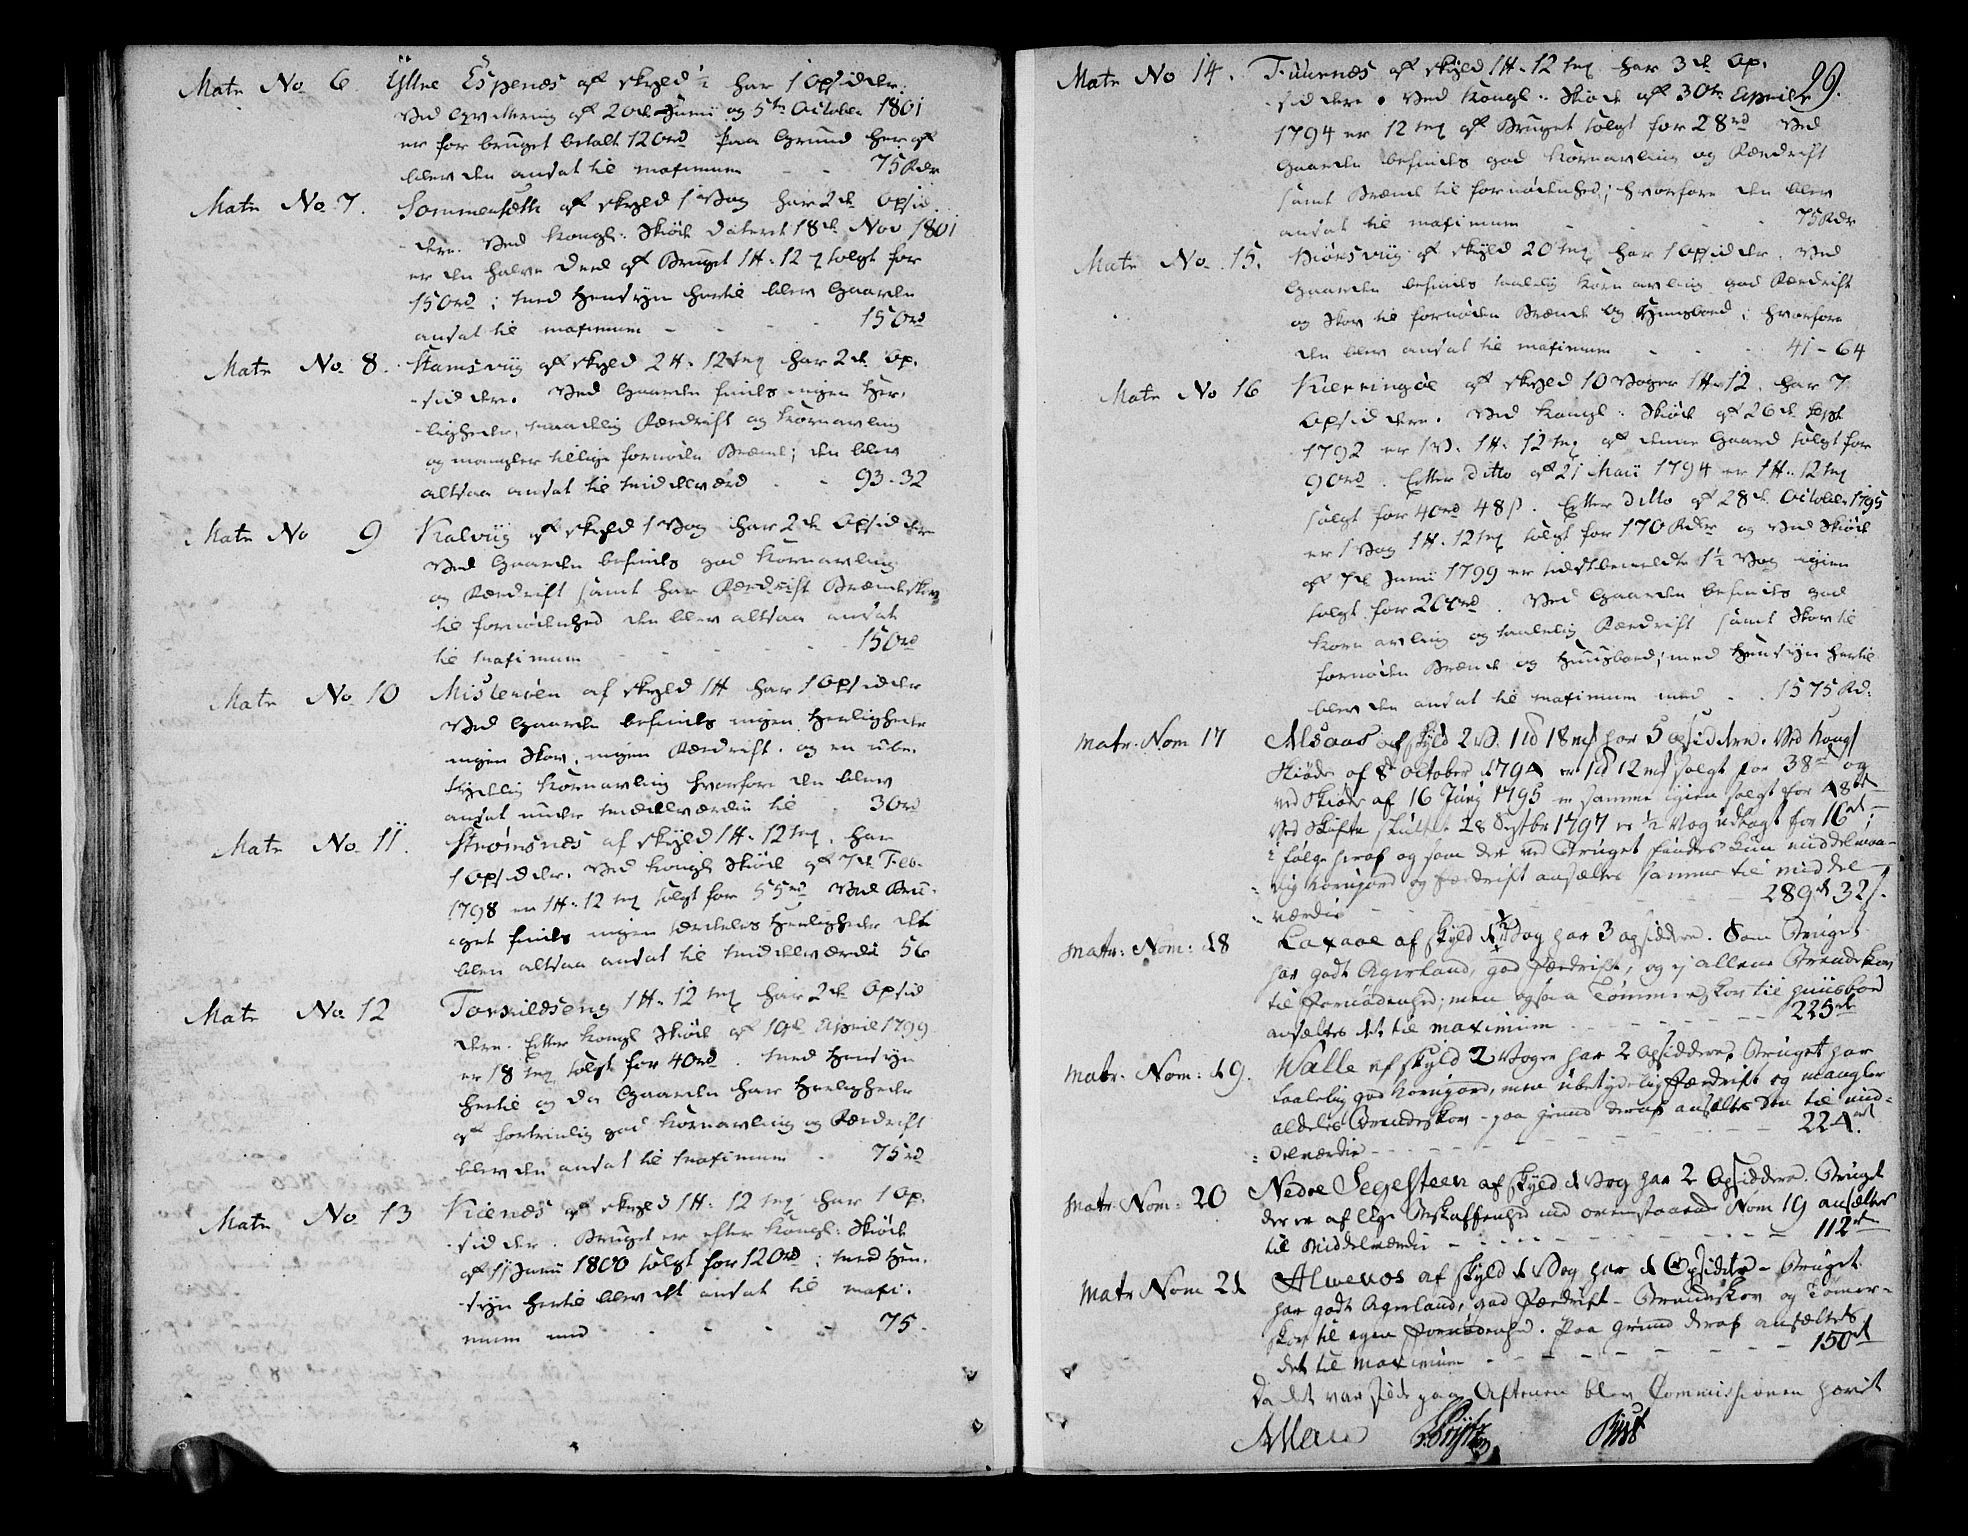 Matr No 6. Yttre Espenæs af skyld ½ har 1 Opsidder.
Ved Qvittering af 20de Junii og 5te October 1801
er for bruget betalt 120rd paa Grund her af
blev den ansat til maximum - - 75 Rdr
Matr No 7. Sommersæth af skyld 1 Vog har 2de Opsid
dere. Ved Kongl: Skiöde dateret 18de Nov 1801
er den halve Deel af Bruget 1 H. 12 solgt for
150rd; med Hensyn hertil blev Gaarden
ansat til maximum - - - 150rd
Matr No. 8. Stamsviig af skyld 2 H. 12 mk har 2de Op-
sidder. Ved Gaarden findes ingen Her-
ligheder, maadelig Fædrift og Kornavling
og mangler tillige fornøden Brænde; den blev
altsaa ansat til Middelværd - - 93-32
Matr No 9 Kalviig af skyld 1 Vog har 2de Opsiddere
Ved Gaarden befindes god Kornavling
og Fædrift samt har Brændeskov
til fornødenhed den blev altsaa ansat
til maximum - - - 150rd
Matr No. 10 Mistenöen af skyld 1 H har 1 Opsidder
Ved Gaarden befindes ingen Herligheder
ingen Skov, ingen Fædrift. og en ube-
tydelig Kornavling hvorfore den blev
ansat under middelværdie til - 30rd
Matr No. 11. Strömsnæs af skyld 1 H. 12 mk. har
1 Opsidder. Ved Kongl Skiöde af 7de Feb.
1798 er 1 H. 12 mk solgt for 55rd Ved Bru-
get findes ingen særdeles Herligheder det
blev altsaa ansat til middelværdi 56
Matr No. 12 Torkildseng 1 H. 12 mk har 2de Opsid
dere. Efter Kongl Skiöde af 19de April 1799
er 18 mk solgt for 40rd. med Hensyn
hertil og da Gaarden har Herligheder
af fortrinlig god Kornavling og Fædrift
blev den ansat til maximum - 75rd
Matr No. 13 Kienæs af skyld 1 H. 12 mk har 1 Op-
sidder. Bruget er efter Kongl: Skiöde
af 11 Junii 1800 solgt for 120rd; med Hen-
syn hertil blev det ansat til maxi-
mum med - - - - 75.
29.
Matr No 14. Fuurnæs af skyld 1 H. 12 mk har 3de Op-
siddere. Ved Kongl: Skiöde af 30te Aprile
1794 er 12 mk af Bruget solgt for 28rd Ved
Gaarden befindes god Kornavling og Fædrift
samt Brænde til fornødenhed; hvorfore den blev
ansat til maximum - - 75 Rdr
Matr No. 15. Biörsviig af skyld 20 mk har 1 Opsidder. Ved
Gaarden befindes taalelig Kornavling god Fædrift
og Skov til fornøden Brænde og Huusbond; hvorfore
den blev ansat til maximum - - - 41-64
Matr No 16 Kierringöe af skyld 10 Voger 1 H. 12. har 7
Opsiddere. Ved Kongl: Skiöde af 26de Sept
1792 er 1 V. 1 H. 12 mk af denne Gaard solgt for
90rd. Efter Ditto af 21 Maii 1794 er 1 H. 12 mk
solgt for 40rd 48 s. Efter Ditto af 28de October 1795
er 1 Vog 1 H. 12 mk solgt for 170 Rdr og Ved Skiöde
af 7de Junii 1799 er sidstbemeldte 1½ Vog igien
solgt for 200rd. Ved Gaarden befindes god
Kornavling og taalelig Fædrift samt Skov til
fornøden Brænde og Huusbond; med Hensyn hertil
blev den ansat til maximum med - - 1575 Rd:
Matr. Nom 17 Alsaas af skyld 2 V. 1 ld 18 mk har 5 opsiddere. Ved Kongl
Skiöde af 8de October 1794 er 1 ld 12 mk solgt for 38rd og
ved Skiöde af 16 Junj 1795 er samme igien solgt for 48rd
Ved Skifte sluttet 28 Septbr 1797 er ½ Vog udlagt for 16rd;
i følge heraf og som der ved Bruget findes kun middelmaa-
dig Kornjord og Fædrift ansættes samme til middel
værdie - - - - 289rd 32 s.
Matr: Nom: 18 Laxaae af skyld Vog har 3 opsiddere. Som Bruget
har godt Agerland, god Fædrift, og ej allene Brændeskov
til fornødenhed; men ogsaa Tømmerskov til Huusbond
ansættes det til maximum - - - 225rd
Matr. Nom: 19. Walle af skyld 2 Voger har 2 Opsiddere, Bruget har
taalelig god Kornjord, men ubetydelig Fædrift og mangler
aldeles Brændeskov - paa Grund deraf ansættes den til mid-
delværdie - - - - 224rd.
Matr: Nom: 20 Nedre Segelsteen af skyld 1 Vog har 2 Opsiddere. Bruget
der er af lige Beskaffenhed med ovenstaaende Nom 19 ansættes
til Middelværdie - - - - 112rd
Matr Nom 21 Alwenæs af skyld 1 Vog har 1 Opsidder - Bruget
har godt Agerland, god Fædrift - Brændeskov og Tømer-
skov til egen fornødenhed. Paa Grund deraf ansættes
det til maximum - - - - 150rd
Da det var silde paa Aftenen blev Commissionen hævet